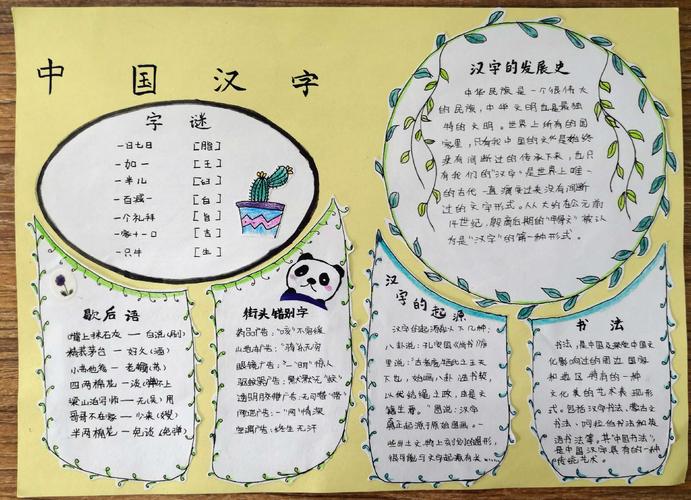 中国汉字
字谜
一日七日 [脂]
一加一 [王]
一半儿 [臼]
一百减一 [白]
一个礼拜 [旨]
一家十一口 [吉]
一只牛 [生]
汉字的发展史
中华民族是一个很伟大
的民族,中华文明也是最独
特的文明。世界上所有的国
家里,只有我中国的文化是始终
没有间断过的传承下来,也只
有我们的"汉字"是世界上唯一
的古代一直演变过来没有间断
过的文字形式。从大约在公元前
14世纪,殷商后期的"甲骨文"被认
为是"汉字"的第一种形式。
歇后语
墙上抹石灰 — 白说(刷)
精装茅台 — 好久(酒)
四两棉花 — 谈(弹)不上
梁山泊军师 — 无(吴)用
半两棉花 — 免谈(免弹)
街头错别字
药品广告:"咳"不容缓
山地车广告:"骑"乐无穷
眼镜广告:一"明"惊人
驱蚊器广告:默默无"蚊"
透明胶带广告:无可"带"
网吧广告:一"网"情深
空调广告:终生无汗
汉字的起源
汉字的起源有以下几种:
八卦说:孔安国《尚书》序
里说:"古者庖牺氏之王天
下也,始画八卦,造书契,
以代结绳之政,由是文
籍生焉。"图说:汉字
真正起源于原始图画。一
些出土文物上有刻划的图形,
很可能与文字起源有关
书法
书法,是中国及深受中国文
化影响过的周边国家
和地区特有的一种
文化美的艺术表现形
式。包括汉字书法、蒙古文
书法,阿拉伯书法和英
语书法等。其"中国书法",
是中国汉字具有的一种
传统艺术。